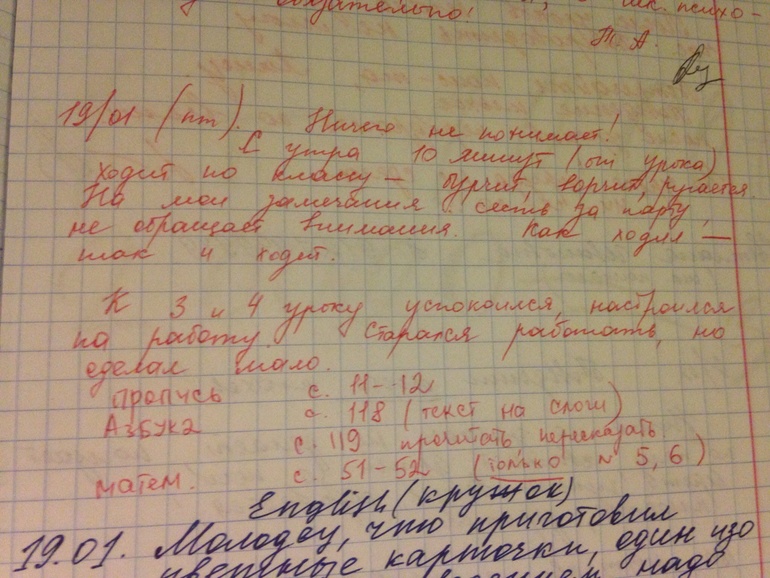 обязательно!
психо-
Т. А.
19/01 (пт). Ничего не понимает!
С утра 10 минут (от урока)
ходит по классу — бурчит, ворчит, ругается.
На мои замечания сесть за парту,
не обращает внимания. Как ходил —
так и ходит.
К 3 и 4 уроку успокоился, настроился
на работу. Старался работать, но
сделал мало.
Пропись с. 11-12
Азбука с. 118 (текст на слоги)
с. 119 прочитать пересказать
матем. с. 51-52 (только № 5, 6)
English (кружок)
19.01. Молодец, что приготовил
цветные карточки, один изо
надо